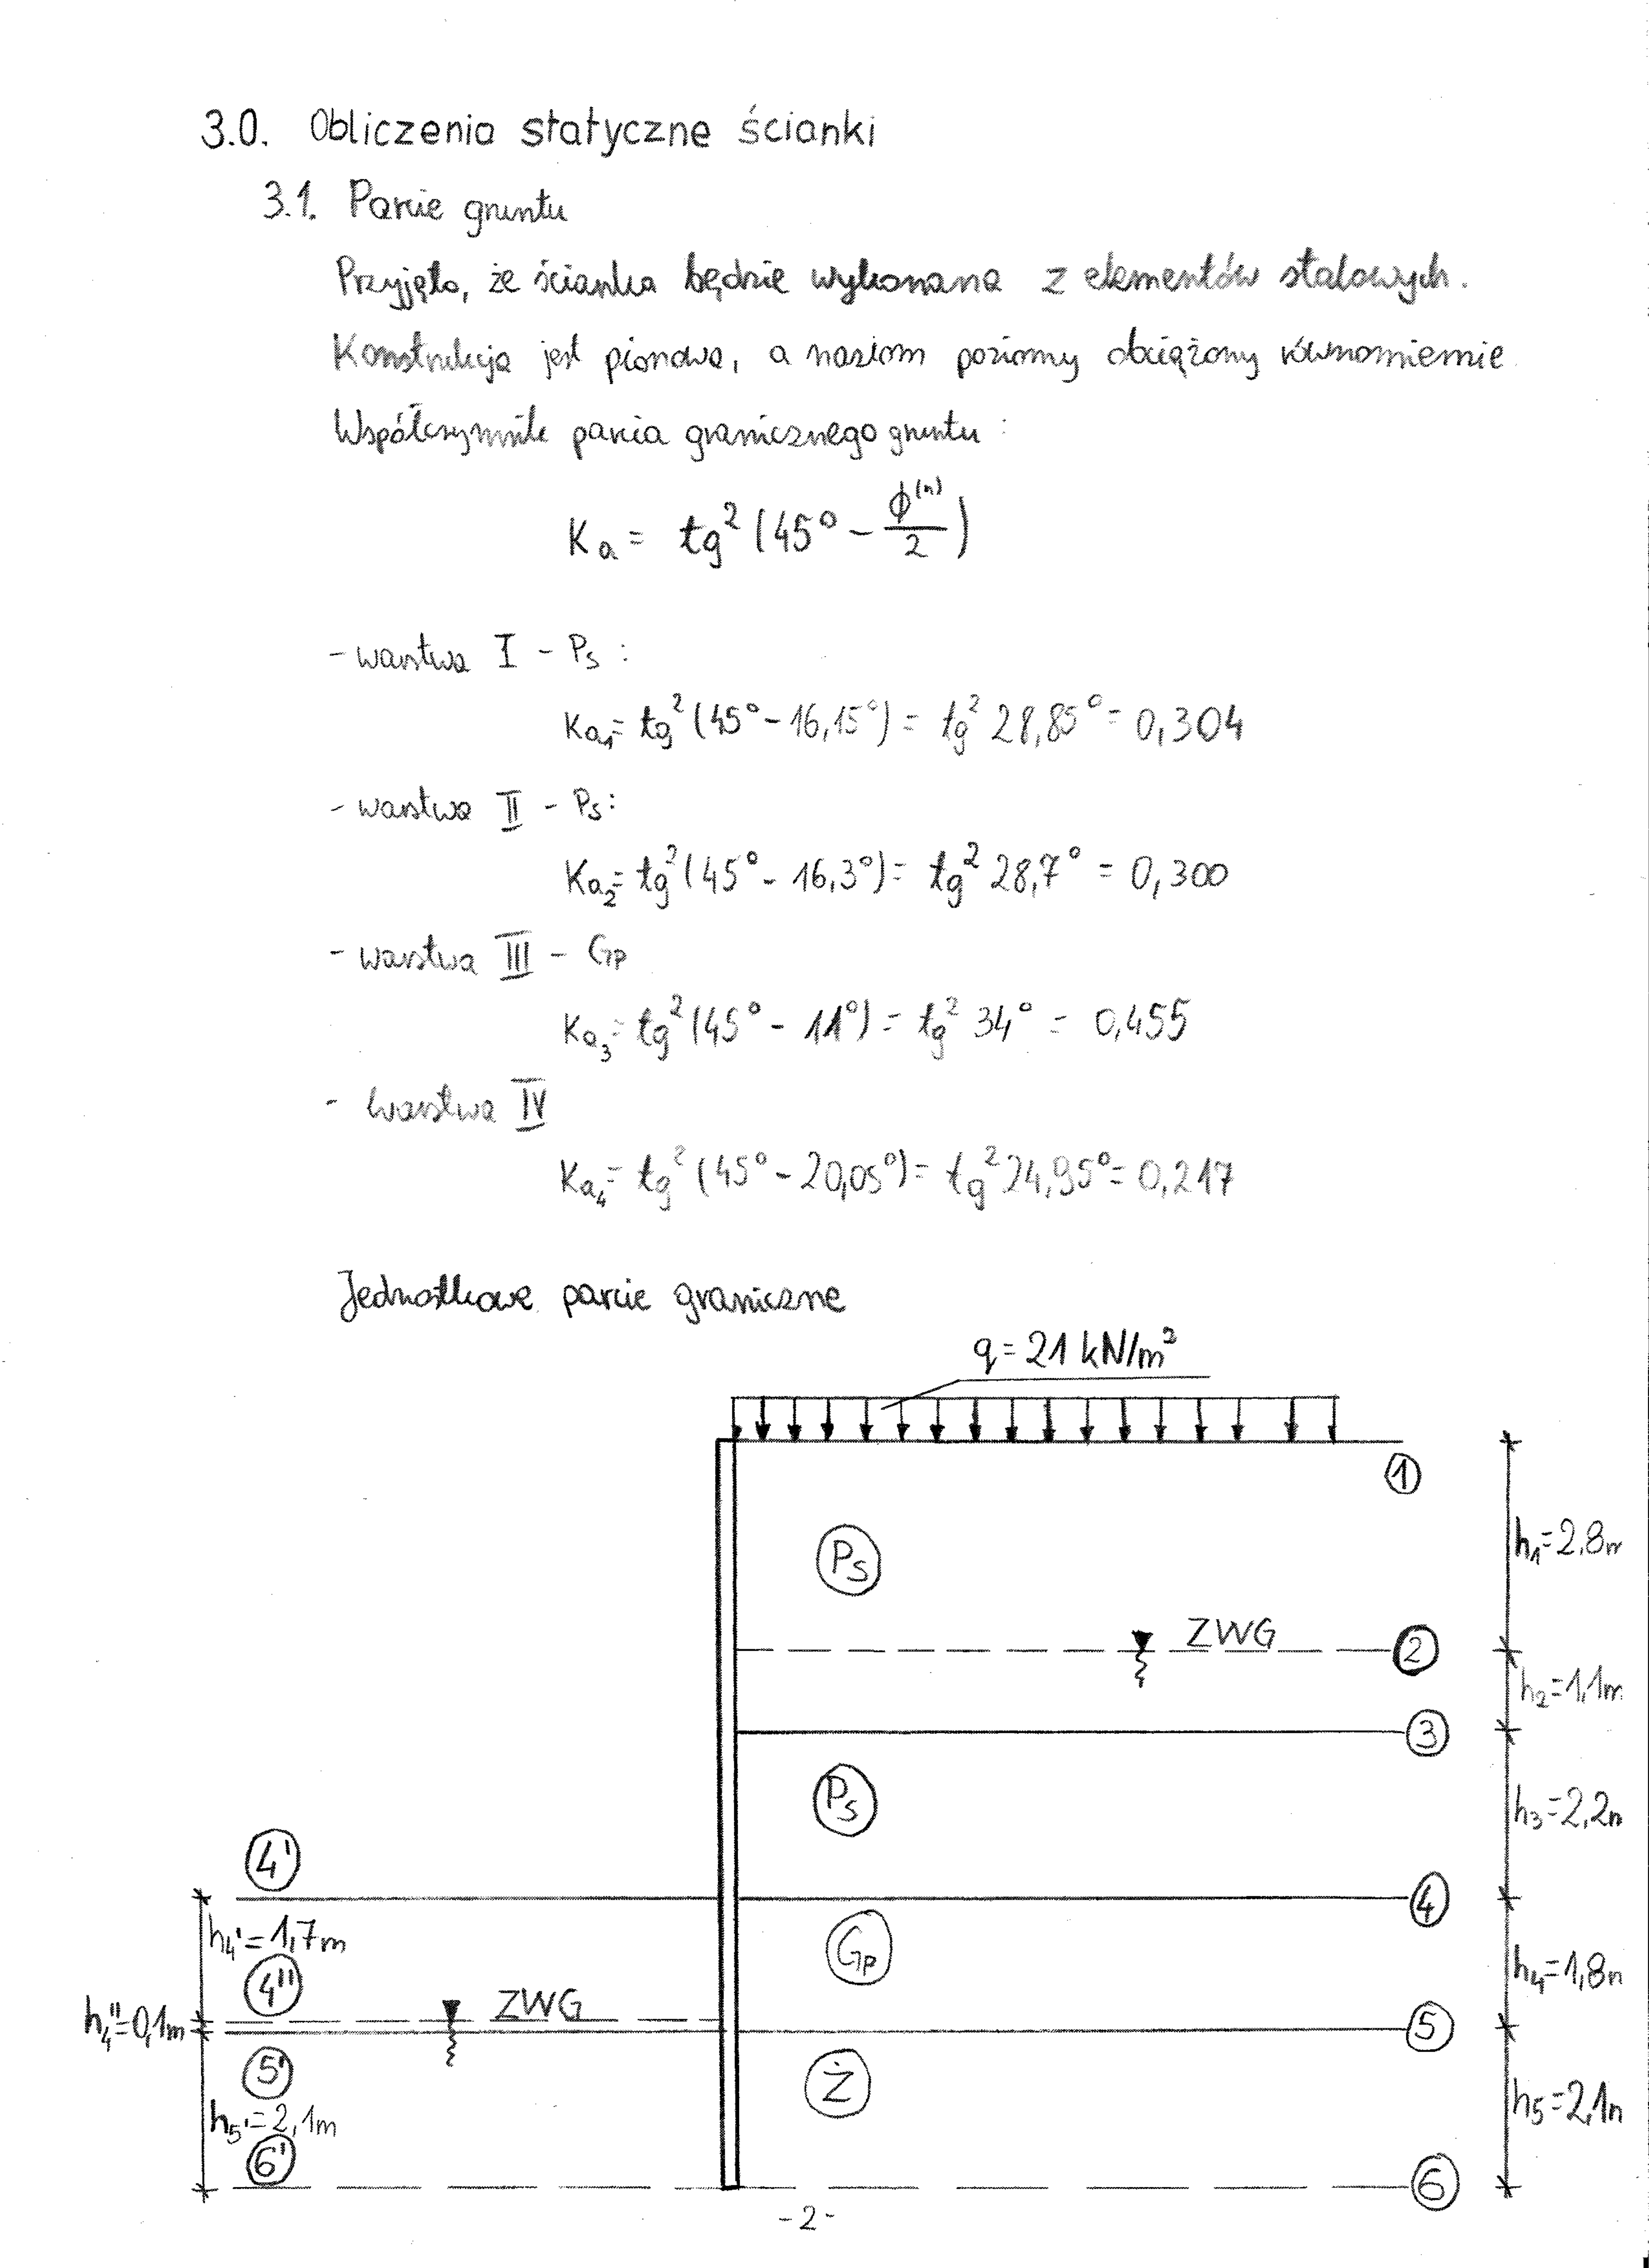 3.0. Obliczenia statyczne ścianki
3.1. Parcie gruntu
Przyjęto, że ścianka będzie wykonana z elementów stalowych.
Konstrukcja jest pionowa, a naziom poziomy obciążony równomiernie
Współczynnik parcia granicznego gruntu :
Ka = tg² (45° - ϕ⁽ⁿ⁾/2)
- warstwa I - Ps :
Ka₁ = tg² (45° - 16,15°) = tg² 28,85° = 0,304
- warstwa II - Ps :
Ka₂ = tg² (45° - 16,3°) = tg² 28,7° = 0,300
- warstwa III - Gp
Ka₃ = tg² (45° - 11°) = tg² 34° = 0,455
- warstwa IV
Ka₄ = tg² (45° - 20,05°) = tg² 24,95° = 0,217
Jednostkowe parcie graniczne
q = 21 kN/m²
1
h₁ = 2,8m
Ps
ZWG
2
h₂ = 1,1m
3
Ps
h₃ = 2,2m
4'
4
h₄' = 1,7m
Gp
h₄ = 1,8m
4''
ZWG
h₄'' = 0,1m
5
5'
Ż
h₅ = 2,1m
h₅' = 2,1m
6'
6
- 2 -